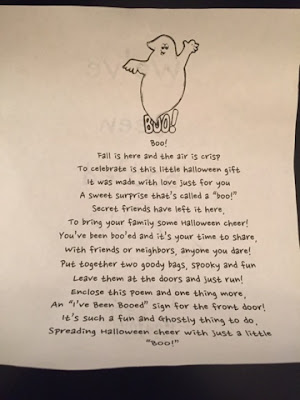 BOO!
Boo!
Fall is here and the air is crisp
To celebrate is this little halloween gift
It was made with love just for you
A sweet surprise that's called a "boo!"
Secret friends have left it here,
To bring your family some Halloween cheer!
You've been boo'ed and it's your time to share,
With friends or neighbors, anyone you dare!
Put together two goody bags, spooky and fun
Leave them at the doors and just run!
Enclose this poem and one thing more,
An "I've Been Booed" sign for the front door!
It's such a fun and Ghostly thing to do,
Spreading Halloween cheer with just a little
"Boo!"